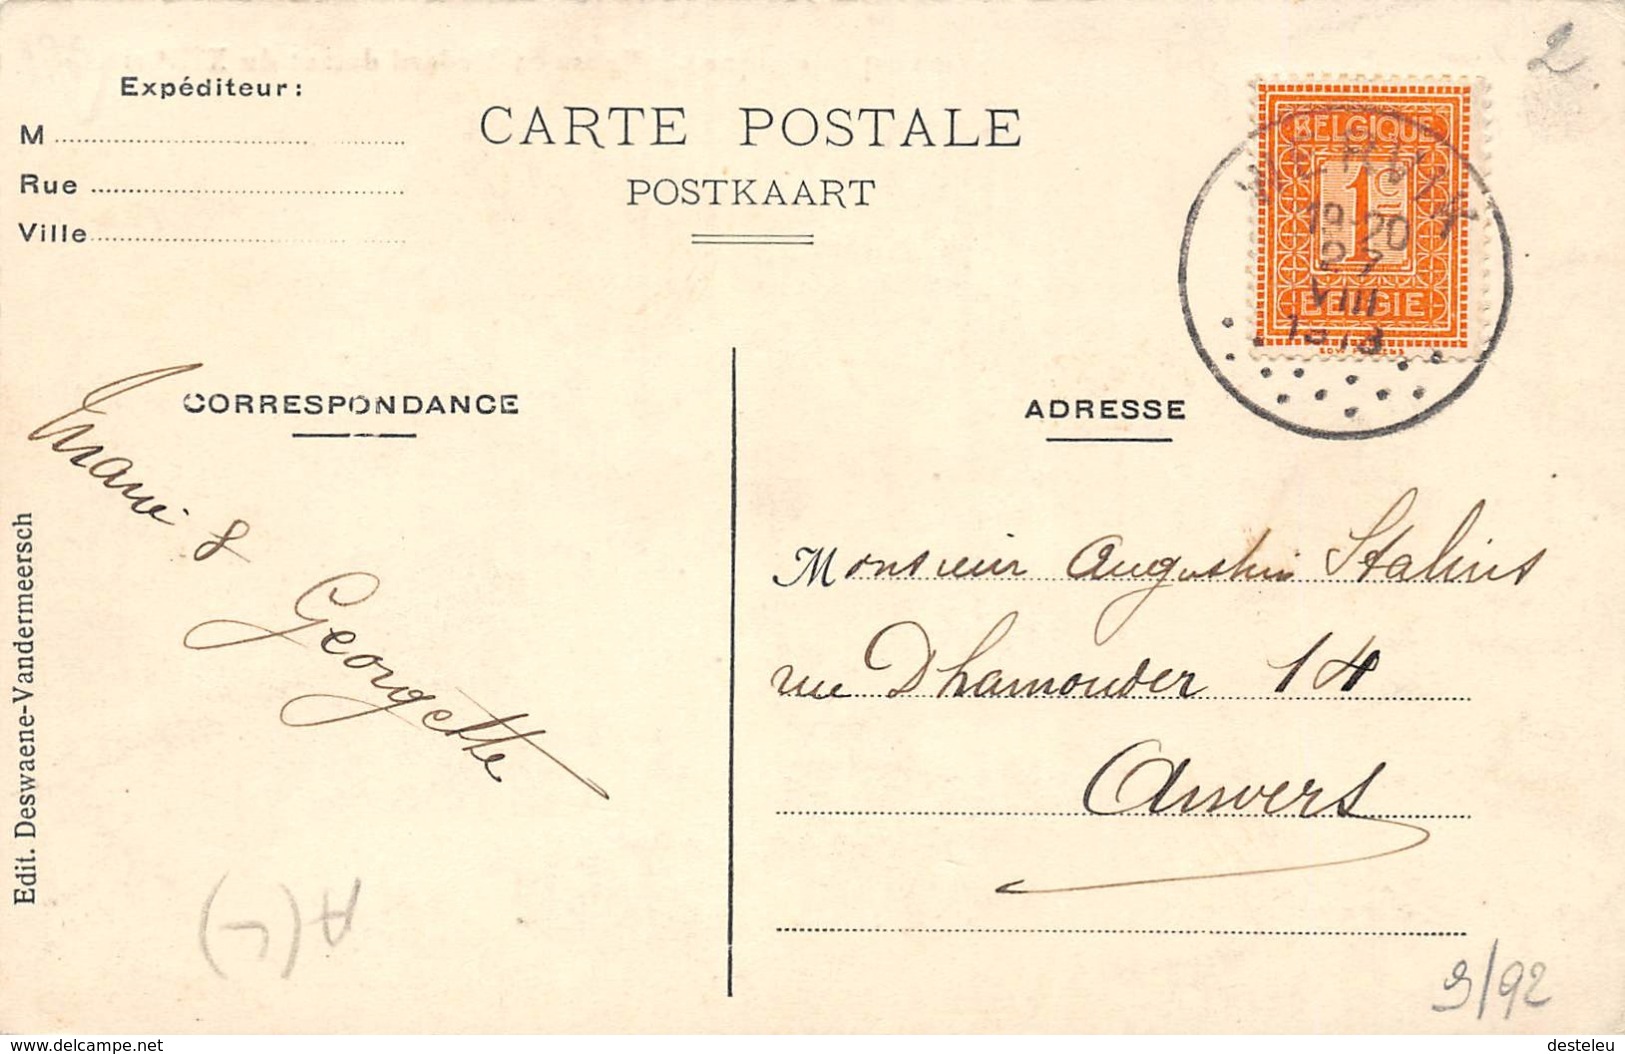 Expéditeur:
M
Rue
Ville
CARTE POSTALE
POSTKAART
2
BELGIQUE
1c
BELGIE
WERVIK
19-20
27
VIII
1913
CORRESPONDANCE
ADRESSE
Marie &
Georgette
Monsieur Augustin Stalins
rue Dhamouder 14
Anvers
Edit. Deswaene-Vandermeersch
A(L)
9/92
https://www.delcampe.net
desteleu